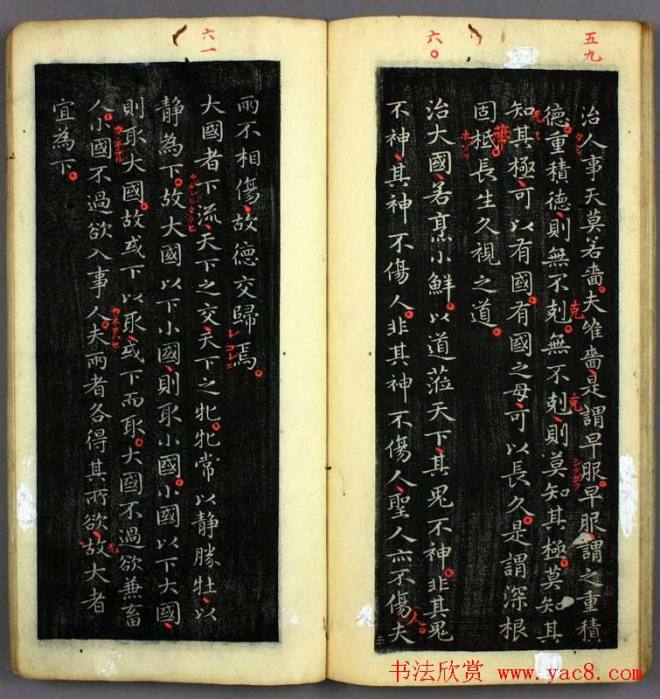 五九
治人事天莫若嗇夫唯嗇是謂早服早服謂之重積
德重積德則無不剋無不剋則莫知其極莫知其
知其極可以有國有國之母可以長久是謂深根
固柢長生久視之道
六〇
治大國若烹小鮮以道莅天下其鬼不神非其鬼
不神其神不傷人非其神不傷人聖人亦不傷夫
六一
兩不相傷故德交歸焉
大國者下流天下之交天下之牝牝常以静勝牡以
静為下故大國以下小國則取小國小國以下大國
則取大國故或下以取或下而取大國不過欲兼畜
人小國不過欲入事人夫兩者各得其所欲故大者
宜為下
克
克
书法欣赏 www.yac8.com